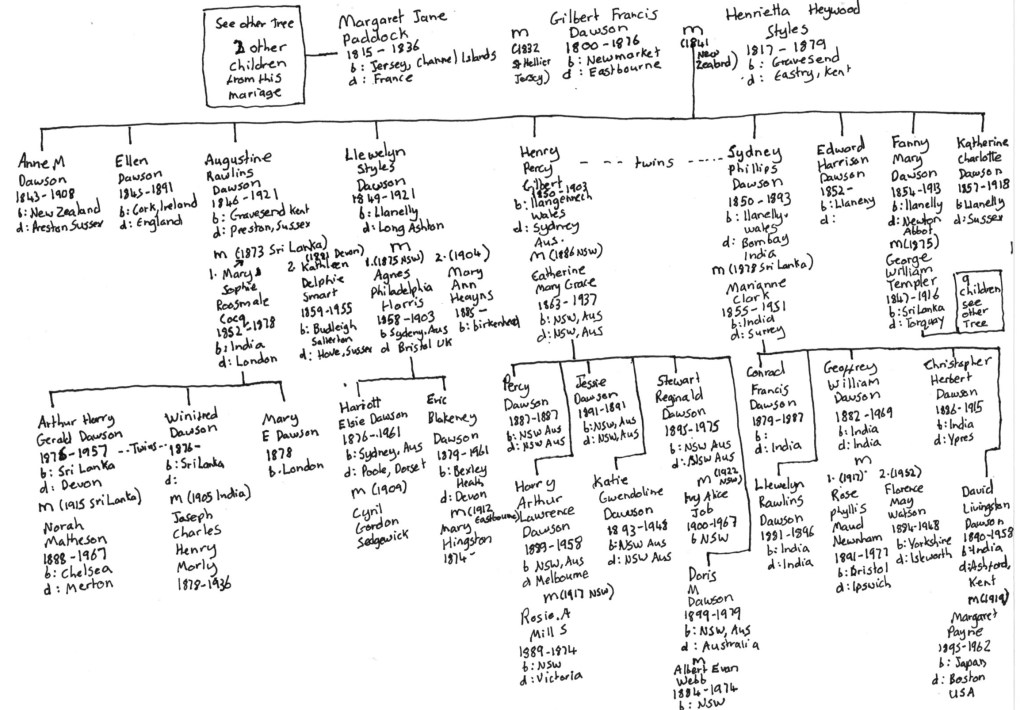 See other Tree
2 other
children
from this
mariage
Margaret Jane
Paddock
1815 - 1836
b: Jersey, Channel Islands
d: France
m
(1832
St Hellier
Jersey)
Gilbert Francis
Dawson
1800 - 1876
b: Newmarket
d: Eastbourne
m
(1841
New
Zealand)
Henrietta Heywood
Styles
1817 - 1879
b: Gravesend
d: Eastry, Kent
Anne M
Dawson
1843 - 1908
b: New Zealand
d: Preston Sussex
Ellen
Dawson
1845 - 1891
b: Cork, Ireland
d: England
Augustine
Rawlins
Dawson
1846 - 1921
b: Gravesend Kent
d: Preston, Sussex
m (1873 Sri Lanka)
1. Mary
Sophie
Roosmale
Cocq
1852 - 1878
b: India
d: London
2. (1881 Devon)
Kathleen
Delphie
Smart
1859 - 1955
b: Budleigh
Salterton
d: Hove, Sussex
Llewelyn
Styles
Dawson
1849 - 1921
b: Llanelly
d: Long Ashton
m
1. (1875 NSW)
Agnes
Philadelphia
Harris
1858 - 1903
b Sydeny, Aus
d Bristol UK
2. (1904)
Mary
Ann
Heayns
1885 -
b: birkenhead
Henry
Percy
Gilbert
1850 - 1903
b: llangennech
Wales
d: Sydney
Aus.
m (1886 NSW)
Catherine
Mary Grace
1863 - 1937
b: NSW, Aus
d: NSW, Aus
--- twins ---
Sydney
Phillips
Dawson
1850 - 1893
b: llanelly.
wales
d: Bombay
India
m (1878 Sri Lanka)
Marianne
Clark
1855 - 1951
b: India
d: Surrey
Edward
Harrison
Dawson
1852 -
b: Llanelly
d:
Fanny
Mary
Dawson
1854 - 1913
b: llanelly
d: Newton
Abbot
m (1875)
George
William
Templer
1847 - 1916
b: Sri Lanka
d: Torquay
9
children
see
other
Tree
Katherine
Charlotte
Dawson
1857 - 1918
b Llanelly
d: Sussex
Arthur Harry
Gerald Dawson
1876 - 1957
b: Sri Lanka
d: Devon
m (1915 Sri Lanka)
Norah
Matheson
1888 - 1967
b: Chelsea
d: Merton
-- Twins --
Winifred
Dawson
1876 -
b: Sri Lanka
d:
m (1905 India)
Joseph
Charles
Henry
Morly
1878 - 1936
Mary
E Dawson
1878
b: London
Hariott
Elsie Dawson
1876 - 1961
b: Sydney, Aus
d: Poole, Dorset
m (1909)
Cyril
Gordon
Sedgewick
Eric
Blakeney
Dawson
1879 - 1961
b: Bexley
Heath,
d: Devon
m (1912
Eastbourne)
Mary
Hingston
1874 -
Percy
Dawson
1887 - 1887
b: NSW Aus
d: NSW Aus
Harry
Arthur
Lawrence
Dawson
1889 - 1958
b NSW, Aus
d Melbourne
m (1917 NSW)
Rosie. A
Mill S
1889 - 1974
b: NSW
d: Victoria
Jessie
Dawson
1891 - 1891
b: NSW, Aus
d: NSW, Aus
Katie
Gwendoline
Dawson
1893 - 1948
b: NSW Aus
d: NSW Aus
Stewart
Reginald
Dawson
1895 - 1975
b: NSW Aus
d: NSW Aus
m (1922
NSW)
Ivy Alice
Job
1900 - 1967
b NSW
Doris
M
Dawson
1899 - 1979
b: NSW, Aus
d: Australia
m
Albert Evan
Webb
1884 - 1974
b: NSW
Conrad
Francis
Dawson
1879 - 1887
b:
d: India
Llewelyn
Rawlins
Dawson
1881 - 1896
b: India
d: India
Geoffrey
William
Dawson
1882 - 1969
b: India
d: India
m
1. (1917)
Rose
phyllis
Maud
Newnham
1891 - 1977
b: Bristol
d: Ipswich
2. (1952)
Florence
May
Watson
b: Yorkshire
d: Isleworth
Christopher
Herbert
Dawson
1886 - 1915
b: India
d: Ypres
David
Livingston
Dawson
1890 - 1958
b: India
d: Ashford,
Kent
m (1919)
Margaret
Payne
1895 - 1962
b: Japan
d: Boston
USA